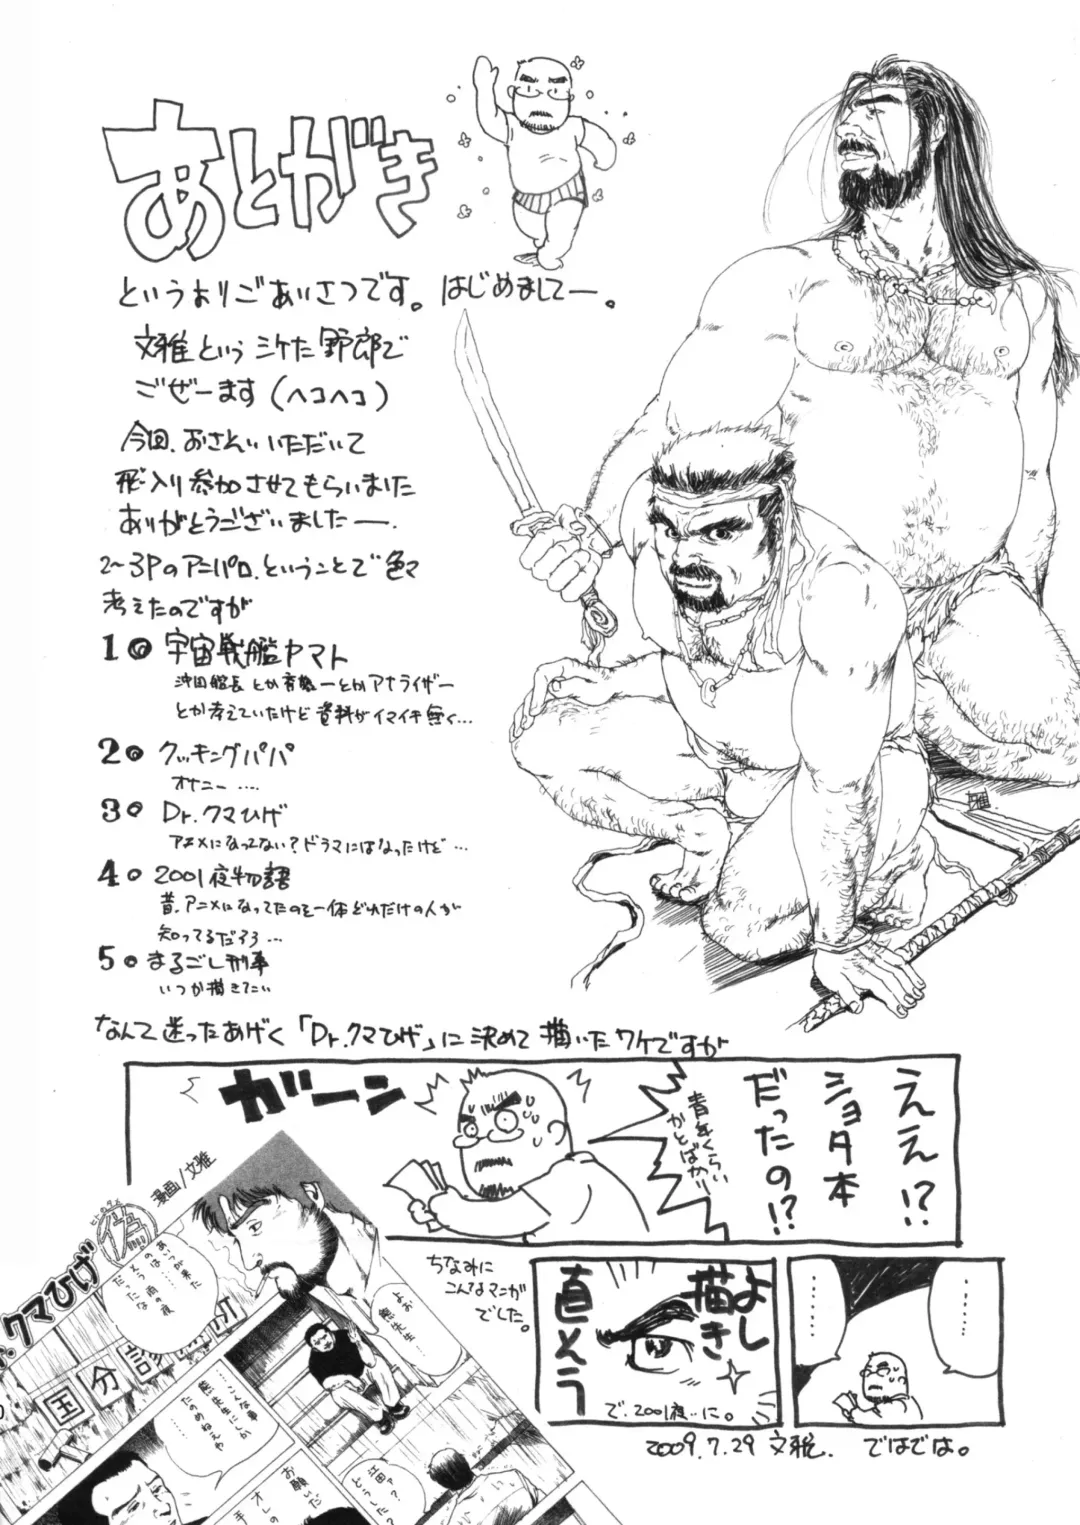 あとがき
というよりごあいさつです。はじめましてー。
文雅というシケた野郎で
ござーます(ヘコヘコ)
今回、おさそいいただいて
飛入り参加させてもらいました
ありがとうございましたー。
2〜3Pのアニパロ、ということで色々
考えたのですが
1。宇宙戦艦ヤマト
沖田艦長とか斉藤一とかアナライザー
とか考えていたけど資料がイマイチ無く…
2。クッキングパパ
オサニー….
3。Dr.クマひげ
アニメになってない?ドラマにはなったけど…
4。2001夜物語
昔、アニメになってたのを一体どれだけの人が
知ってるだろう…
5。まるごし刑事
いつか描きてい
なんて迷ったあげく「Dr.クマひげ」に決めて描いたワケですが
ええ!?
ショタ本
だったの!?
青年くらい
かとばかり
ガーン
ちなみに
こんなマンガ
でした。
漫画/文雅
偽
Dr.クマひげ
あいつが来た
のは……
そう雨の夜
だったな
よお
熊先生…
国分診
……こんな事
熊先生にしか
たのめねぇや
……
お願いだ
オレの
江田ァ?
どうした?
………
………
よし
描き
直そう
で、2001夜…に。
2009.7.29 文雅. ではでは。
雅